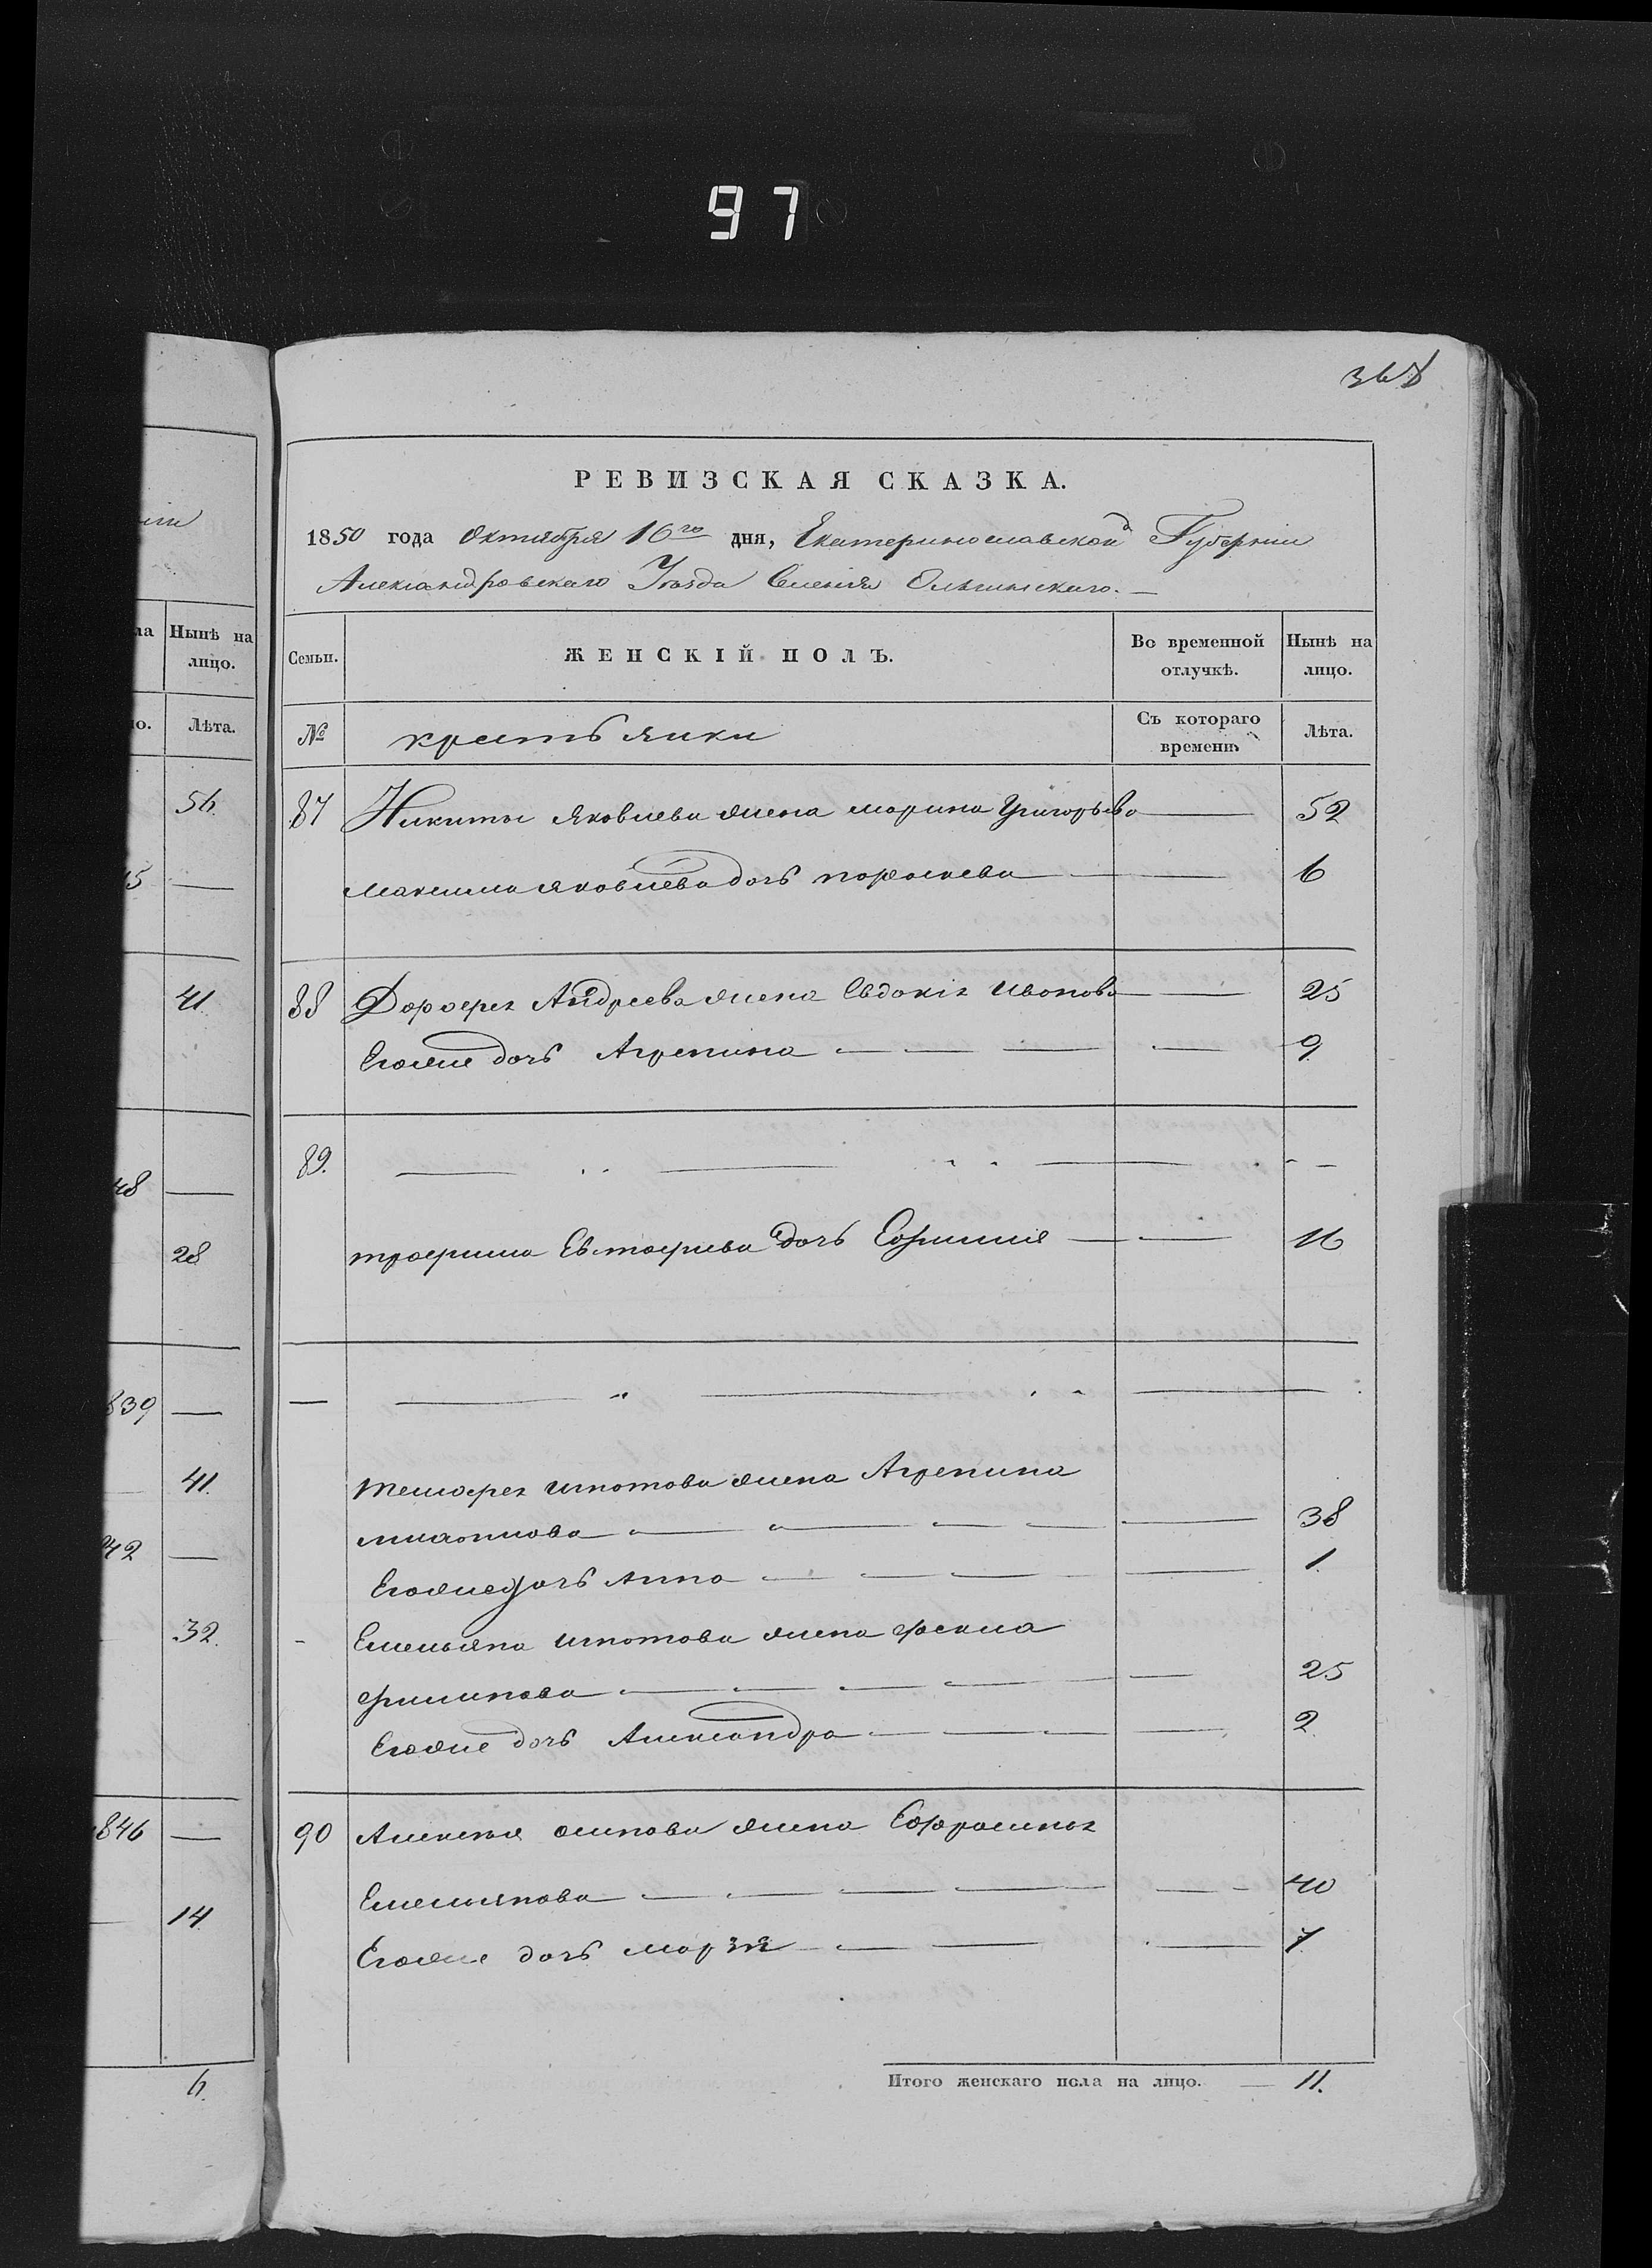 97
368
РЕВИЗСКАЯ СКАЗКА.
1850 года Октября 16го дня, Екатеринославской Губернiи
Александровскаго Уѣзда Селенiя Ольгинскаго.
ла Нынѣ на лицо.
Семьи.
ЖЕНСКIЙ ПОЛЪ.
Во временной отлучкѣ.
Нынѣ на лицо.
Лѣта.
№
крестьянки
Съ котораго времени.
Лѣта.
56
87 Никиты Яковлева жена марина Григорьева 52
15
максима яковлева дочь пораскева 6
41
88 Дорофея Андреева жена Евдокiя Иванова 25
Егоже дочь Агрепина 9
89.
48
28
трофима Евтафиева дочь Ефимия 16
839
41.
Тимофея ипатова жена Агрепина
42
38
Егоже дочь Анна 1.
32.
Емельяна ипатова жена фекла
филипова 25
Егоже дочь Александра 2
846
90 Алексея осипова жена Ефросинья
Емельянова 40
14
Егоже дочь Марiя 7
6
Итого женскаго пола на лицо. 11.